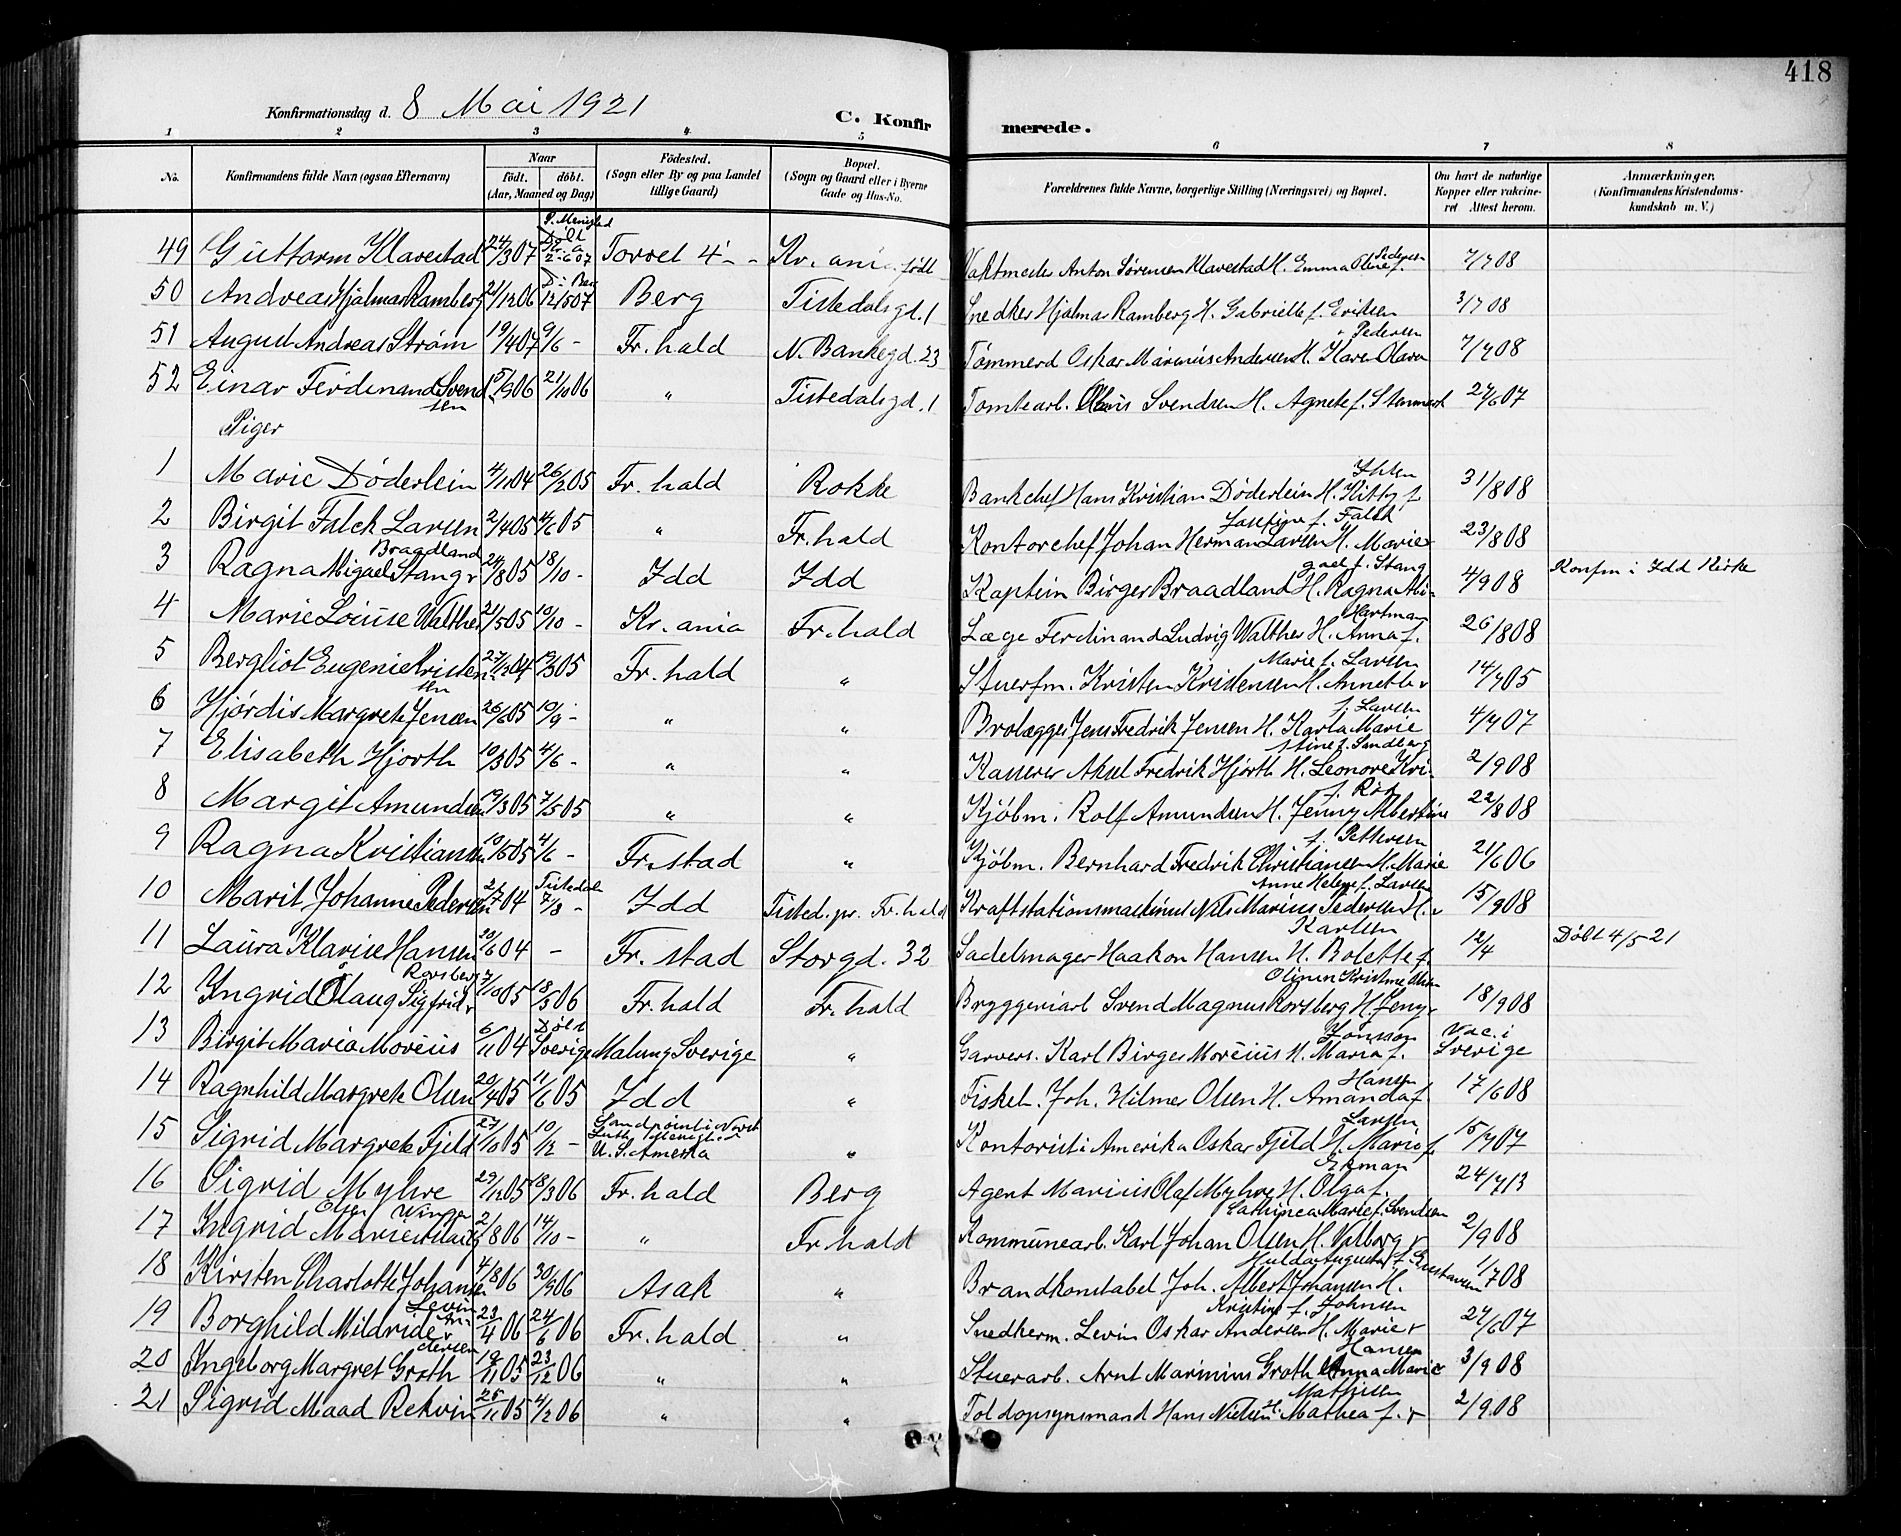 418
Konfirmationsdag d. 8 Mai 1921
C. Konfirmerede.
1 2 3 4 5 6 7 8
No. Konfirmandens fulde Navn (ogsaa Efternavn) Naar født. døbt. (Aar, Maaned og Dag) Fødested. (Sogn eller By og paa Landet tillige Gaard) Bopæl. (Sogn og Gaard eller i Byerne Gade og Hus-No. Forældrenes fulde Navne, borgerlige Stilling (Næringsvei) og Bopæl. Om havt de naturlige Kopper eller vakcineret Attest herom. Anmærkninger. (Konfirmandens Kristendomskundskab m. V.)
49 Guttorm Klavestad 24/3 07 Døbt Kr.a 2-6 07 Torvet 4 Kr.ania født Vaktmester Anton Sørensen Klavestad H. Emma Oline f. Pedersen 7/7 08
50 Andreas Hjalmar Ramberg 21/12 06 12/5 07 Berg Tistedalsgd. 1 Snedker Hjalmar Ramberg H. Gabrielle f. Eriksen 3/7 08
51 August Andreas Strøm 19/4 07 9/6 - Fr. hald N. Bankegd. 23 Tømmerd Oskar Marinius Andersen H. Karen Olava f. Pedersen 7/7 08
52 Einar Ferdinand Svendsen 15/9 06 21/10 06 " Tistedalsgd. 1 Tomtearb. Olaus Svendsen H. Agnete f. Stenmark 24/6 07
Piger
1 Marie Døderlein 4/11 04 26/2 05 Fr. hald Rokke Bankchef Hans Kristian Døderlein H. Kitty f. Ihlen 31/8 08
2 Birgit Falck Larsen 2/4 05 4/6 05 " Fr. hald Kontorchef Johan Herman Larsen H. Marie Josefine f. Falck 23/8 08
3 Ragna Migael Stang Braadland 24/8 05 18/10 - Idd Idd Kaptein Birger Braadland H. Ragna Migael f. Stang 4/9 08 Konfm i Idd Kirke
4 Marie Louise Walther 21/5 05 10/10 - Kr. ania Fr. hald Læge Ferdinand Ludvig Walther H. Anna f. Hartman 26/8 08
5 Bergliot Eugenie Kristensen 27/12 04 19/3 05 Fr. hald " Stuerfm. Kristen Kristensen H. Annette Marie f. Larsen 14/7 05
6 Hjørdis Margrete Jensen 26/6 05 10/9 - " " Brolægger Jens Fredrik Jensen H. Karla Marie f. Larsen 4/7 07
7 Elisabeth Hjorth 10/3 05 4/6 - " " Kasserer Aksel Fredrik Hjorth H. Leonore Kristine f. Sandberg 2/9 08
8 Margit Amundsen 19/3 05 7/5 05 " " Kjøbm. Rolf Amundsen H. Jenny Albertine f. Röd 22/8 08
9 Ragna Kristiansen 10/5 05 4/6 - Fr. stad " Kjøbm. Bernhard Fredrik Christiansen H. Marie f. Pettersen 21/6 06
10 Marit Johanne Pedersen 2/7 04 Tistedalen 7/8 - Idd Tisted. pr. Fr. hald Kraftstationsmaskinist Nils Marius Pedersen H. Anne Helene f. Larsen 15/9 08
11 Laura Klarise Hansen 30/6 04 - Fr. stad Storgd. 32 Sadelmager Haakon Hansen H. Bolette f. Karlsen 12/4 Døbt 4/5 21
12 Ingrid Olaug Sigfrid Rorsberg 7/10 05 18/3 06 Fr. hald Fr. hald Bryggeriarb Svend Magnus Rorsberg H. Jeny 18/9 08
13 Birgit Maria Moreüs 6/11 04 Døbt Sverige Malung Sverige " Garvers. Karl Birger Moreüs H. Maria f. Jonsson Vac. i Sverige
14 Ragnhild Margrete Olsen 20/4 05 11/6 05 Idd " Fiskeh. Joh. Hilmer Olsen H. Amanda f. Hansen 17/6 08
15 Sigrid Margrete Fjeld 27/10 05 10/12 - Sandpoint i Norsk Luth. Menighed U. S. Amerika " Kontorist i Amerika Oskar Fjeld H. Marie f. Larsen 15/7 07
16 Sigrid Myhre 29/12 05 18/3 06 Fr. hald Berg Agent Marinius Olaf Myhre H. Olga f. Ekman 24/7 13
17 Ingrid Marie Olsen 2/8 06 14/10 - " Fr. hald Kommunearb. Karl Johan Olsen H. Valborg Cathinca Marie f. Svendsen 2/9 08
18 Kirsten Charlotte Johansen 4/8 06 30/9 06 Asak " Brandkonstabel Joh. Albert Johansen H. Hulda Augusta f. Gustavsen 1/7 08
19 Borghild Mildride Levin Andersen 23/4 06 24/6 06 Fr. hald " Snedkerm. Levin Oskar Andersen H. Marie Kristine f. Johnsen 24/6 07
20 Ingeborg Margret Groth 19/11 05 23/12 06 " " Stuerarb. Arnt Marinius Groth Anna Marie Hansen 3/9 08
21 Sigrid Maad Rekvin 25/11 05 4/2 06 " " Toldopsynsmand Hans Nielsen H. Mathea f. Mathisen 2/9 08